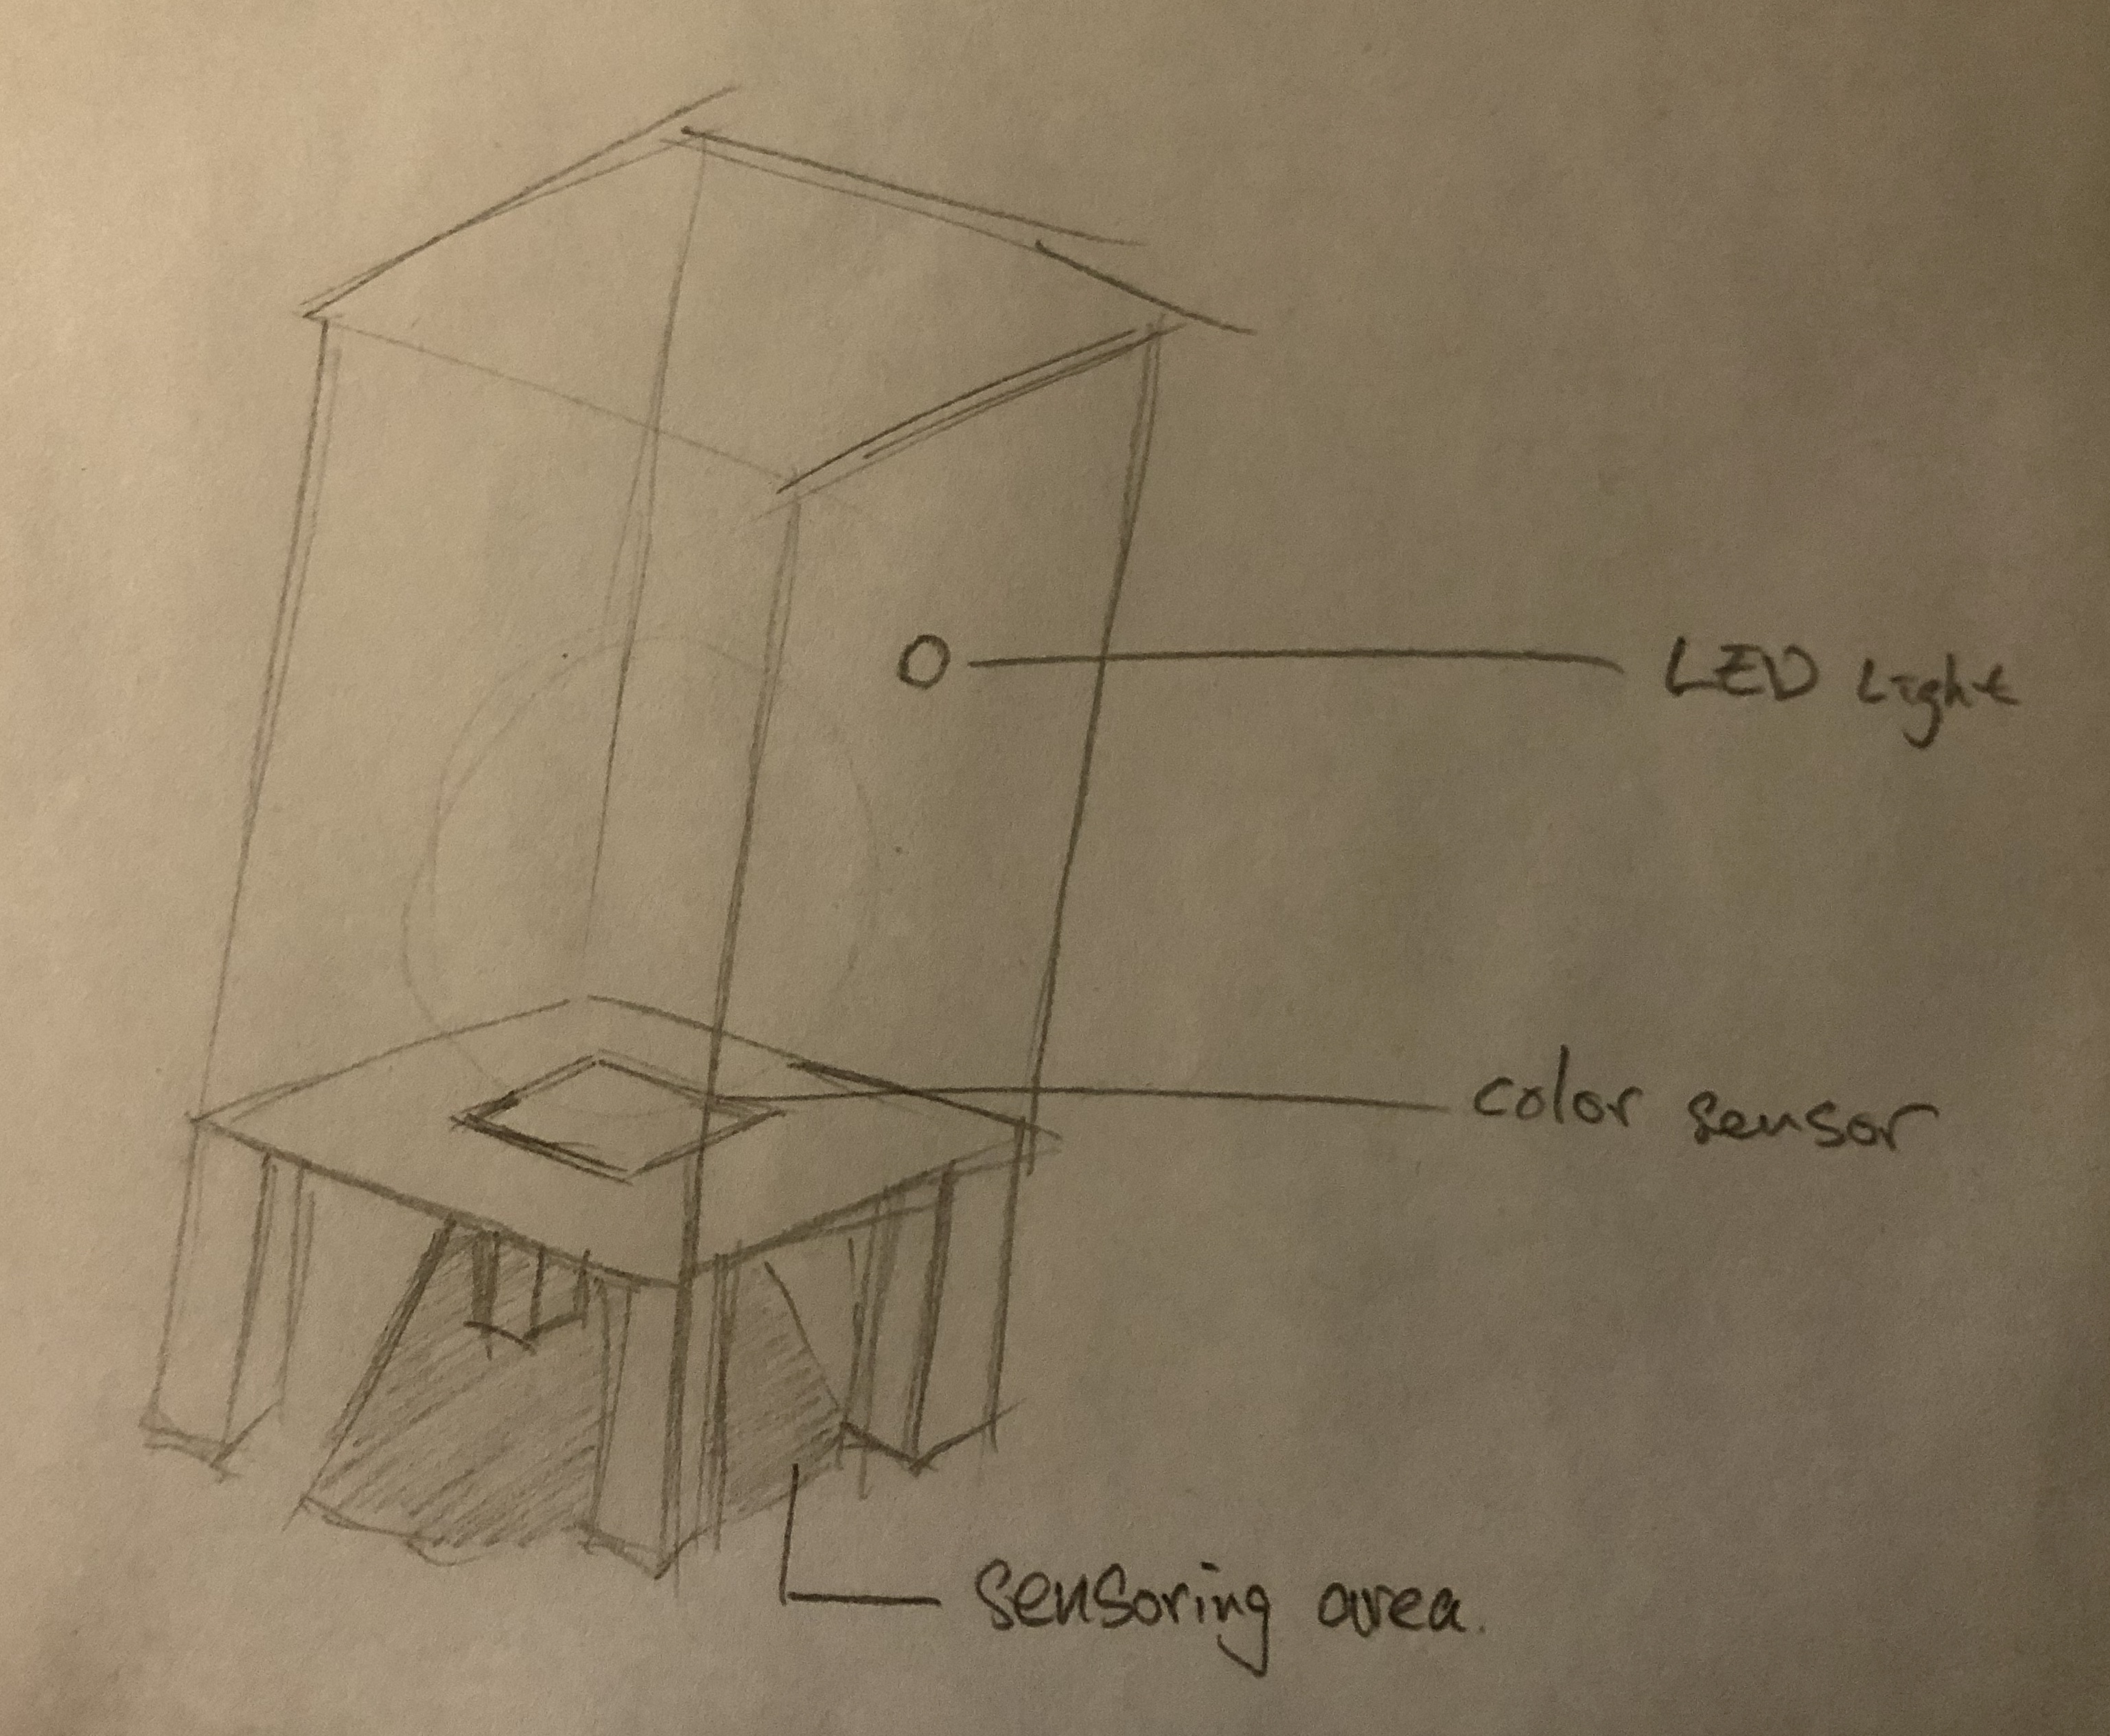 LED Light
color sensor
sensoring area.